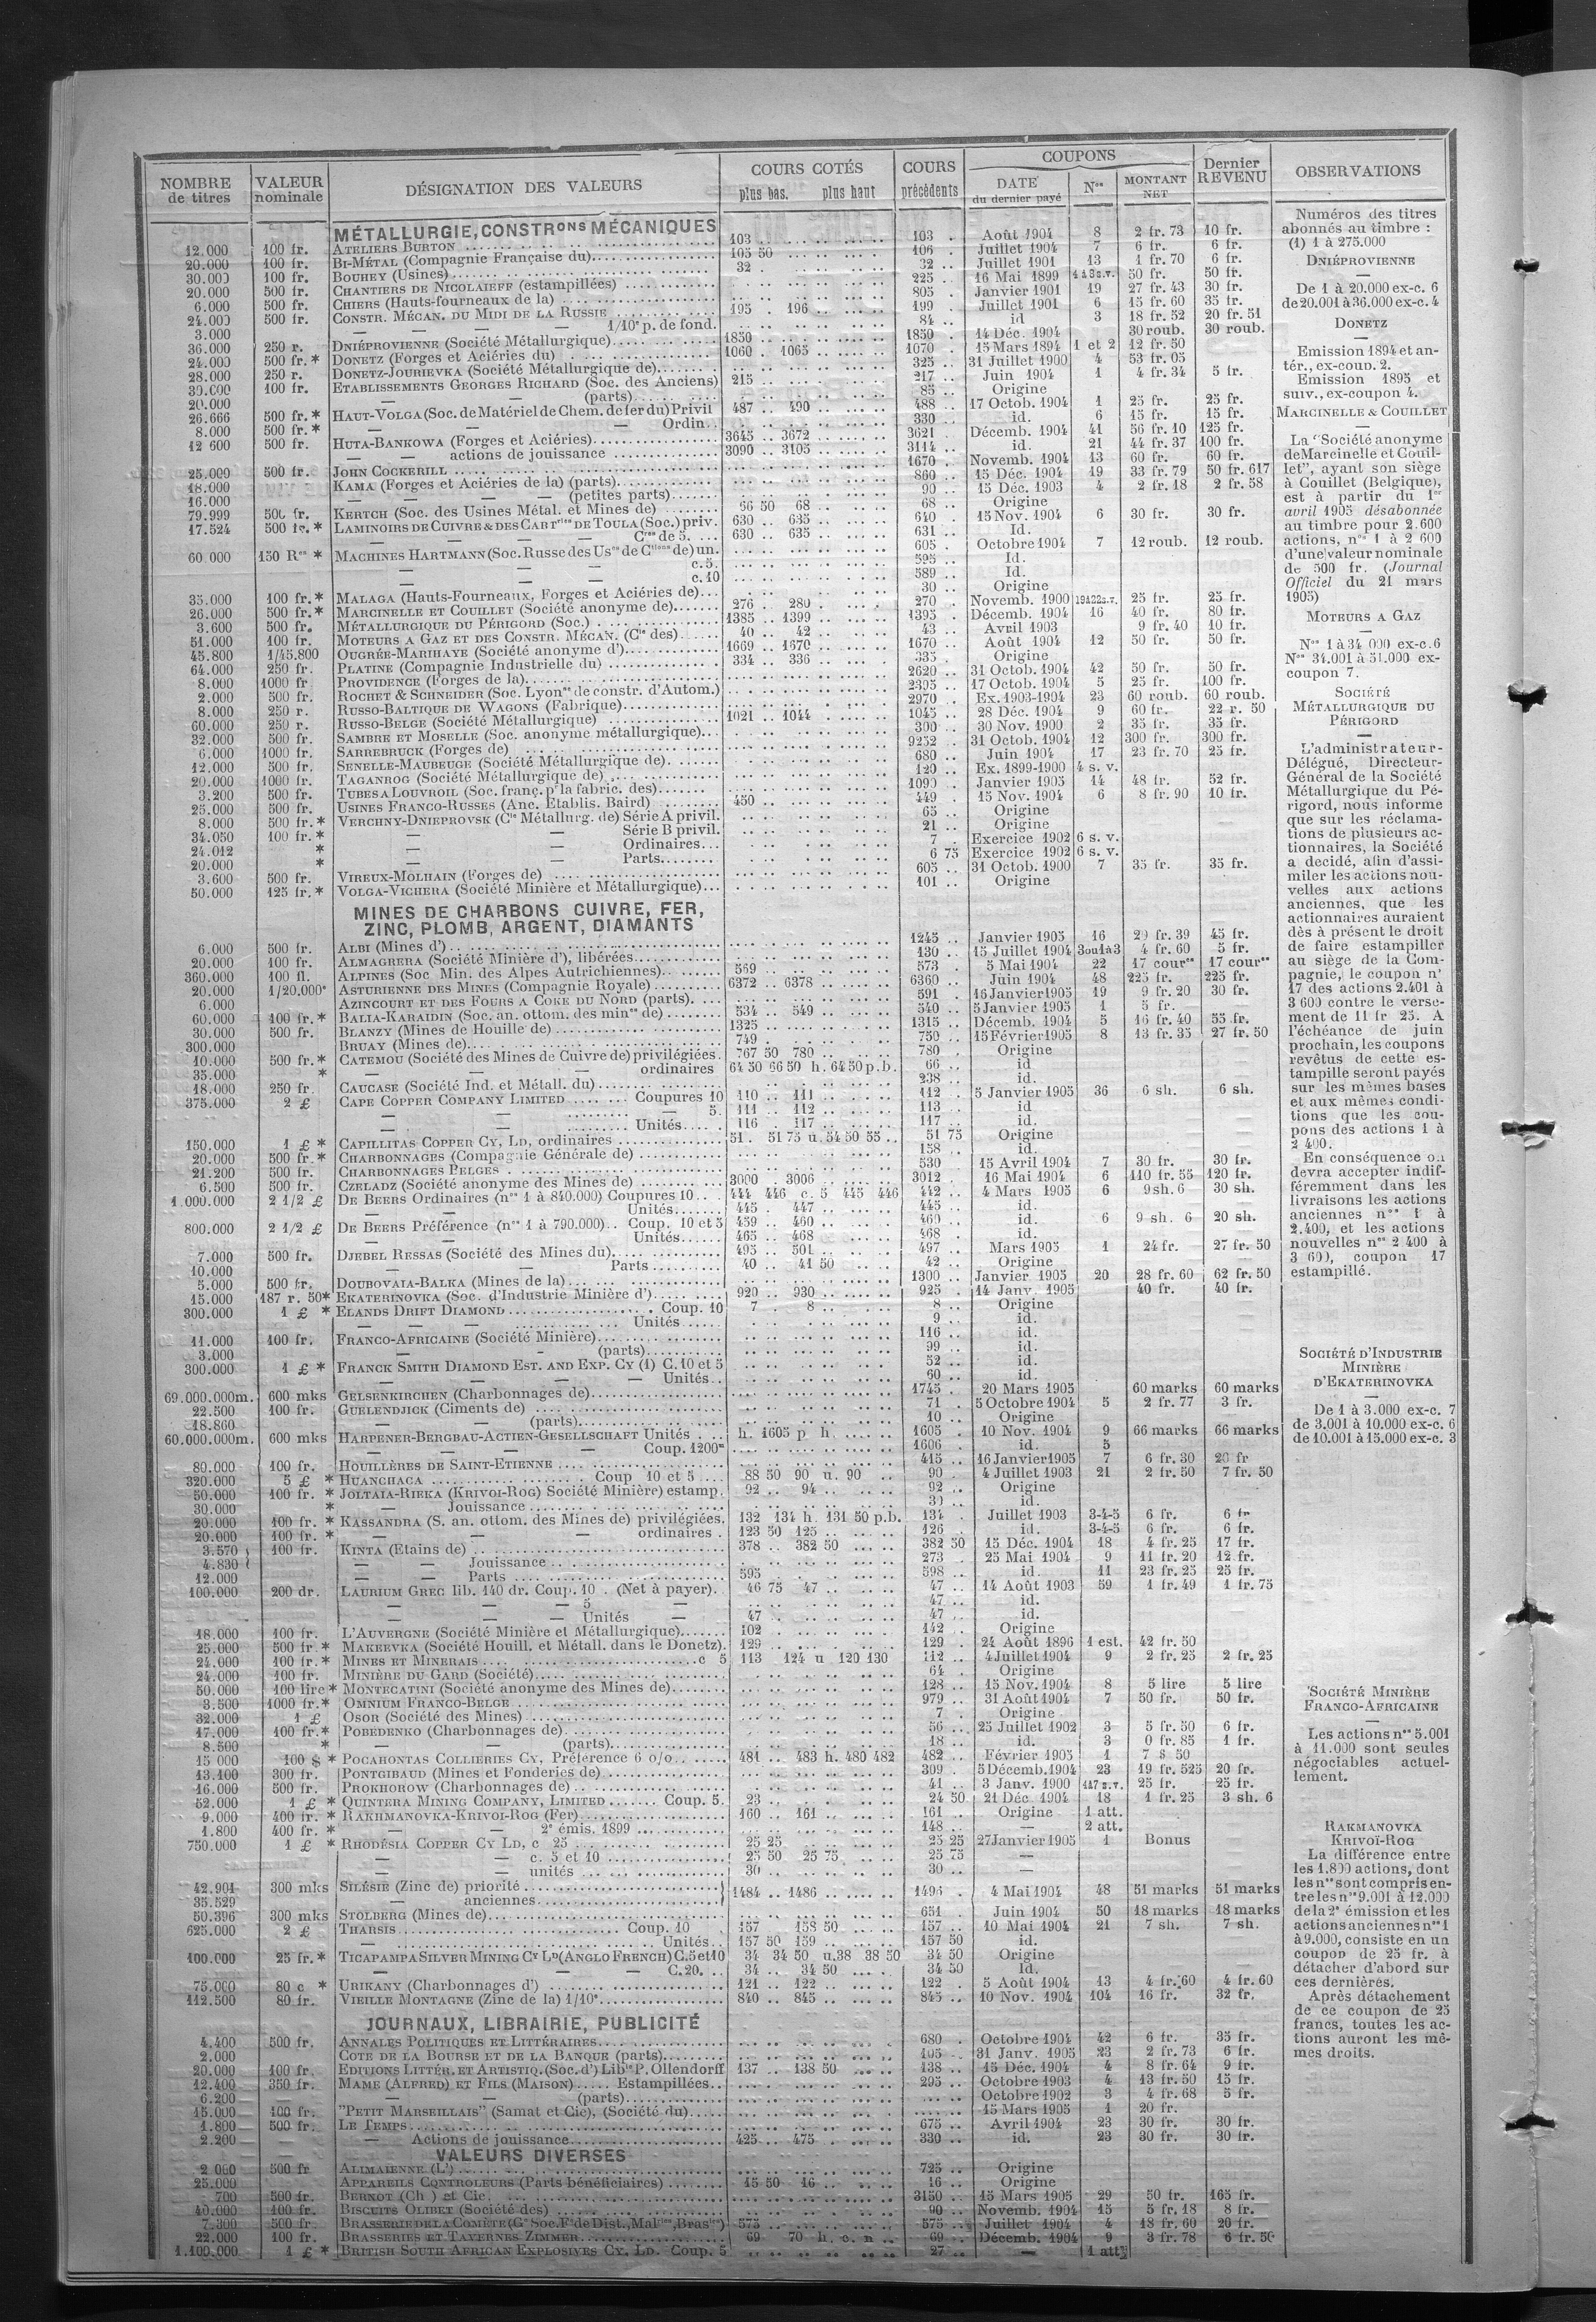 NOMBRE de titres | VALEUR nominale | DÉSIGNATION DES VALEURS | COURS COTÉS plus bas. plus haut | COURS précédents | COUPONS DATE du dernier payé | Nos | MONTANT NET | Dernier REVENU | OBSERVATIONS
MÉTALLURGIE, CONSTRons MÉCANIQUES
12.000 100 fr. ATELIERS BURTON 103 103 Août 1904 8 2 fr. 73 10 fr.
20.000 100 fr. BI-MÉTAL (Compagnie Française du) 105 50 106 Juillet 1904 7 6 fr. 6 fr.
30.000 100 fr. BOUHEY (Usines) 32 32 Juillet 1901 13 1 fr. 70 6 fr.
20.000 500 fr. CHANTIERS DE NICOLAIEFF (estampillées) 225 16 Mai 1899 50 fr. 50 fr.
6.000 500 fr. CHIERS (Hauts-fourneaux de la) 805 Janvier 1901 19 27 fr. 43 30 fr.
24.000 500 fr. CONSTR. MÉCAN. DU MIDI DE LA RUSSIE 195 196 199 Juillet 1901 6 15 fr. 60 35 fr.
3.000 — — — — 1/10e p. de fond. 84 id 3 18 fr. 52 20 fr. 51
36.000 250 r. DNIÉPROVIENNE (Société Métallurgique) 1850 1850 14 Déc. 1904 30 roub. 30 roub.
24.000 500 fr. * DONETZ (Forges et Aciéries du) 1060 1065 1070 15 Mars 1894 1 et 2 12 fr. 50
28.000 250 r. DONETZ-JOURIEVKA (Société Métallurgique de) 325 31 Juillet 1900 4 53 fr. 05
30.000 100 fr. ETABLISSEMENTS GEORGES RICHARD (Soc. des Anciens) 215 217 Juin 1904 1 4 fr. 34 5 fr.
20.000 — — (parts) 85 Origine
26.666 500 fr. * HAUT-VOLGA (Soc. de Matériel de Chem. de fer du) Privil 487 490 488 17 Octob. 1904 1 25 fr. 25 fr.
8.000 500 fr. * — — — Ordin. 330 id. 6 15 fr. 15 fr.
12 600 500 fr. HUTA-BANKOWA (Forges et Aciéries) 3645 3672 3621 Décemb. 1904 41 56 fr. 10 125 fr.
— — actions de jouissance 3090 3105 3114 id. 21 44 fr. 37 100 fr.
25.000 500 fr. JOHN COCKERILL 1670 Novemb. 1904 13 60 fr. 60 fr.
18.000 KAMA (Forges et Aciéries de la) (parts) 860 15 Déc. 1904 19 33 fr. 79 50 fr. 617
16.000 — — — — (petites parts) 90 15 Déc. 1903 4 2 fr. 18 2 fr. 58
79.999 500 fr. KERTCH (Soc. des Usines Métal. et Mines de) 66 50 68 68 Origine
17.524 500 fr. * LAMINOIRS DE CUIVRE & DES CARTries DE TOULA (Soc.) priv. 630 635 640 15 Nov. 1904 6 30 fr. 30 fr.
— — — — Cres de 5. 630 635 631 Id.
60 000 150 Res * MACHINES HARTMANN (Soc. Russe des Uses de Ctions de) un. 605 Octobre 1904 7 12 roub. 12 roub.
— — — c. 5. 595 Id.
— — — c. 10 589 Id.
35.000 100 fr. * MALAGA (Hauts-Fourneaux, Forges et Aciéries de) 30 Origine
26.000 500 fr. * MARCINELLE ET COUILLET (Société anonyme de) 276 280 270 Novemb. 1900 19à22s.v. 25 fr. 25 fr.
3.600 500 fr. MÉTALLURGIQUE DU PÉRIGORD (Soc.) 1385 1399 1395 Décemb. 1904 16 40 fr. 80 fr.
51.000 100 fr. MOTEURS A GAZ ET DES CONSTR. MÉCAN. (Cie des) 40 42 43 Avril 1903 9 fr. 40 10 fr.
45.800 1/45.800 OUGRÉE-MARIHAYE (Société anonyme d') 1669 1670 1670 Août 1904 12 50 fr. 50 fr.
64.000 250 fr. PLATINE (Compagnie Industrielle du) 334 336 335 Origine
8.000 1000 fr. PROVIDENCE (Forges de la) 2620 31 Octob. 1904 42 50 fr. 50 fr.
2.000 500 fr. ROCHET & SCHNEIDER (Soc. Lyonse de constr. d'Autom.) 2395 17 Octob. 1904 5 25 fr. 100 fr.
8.000 250 r. RUSSO-BALTIQUE DE WAGONS (Fabrique) 2970 Ex. 1903-1904 23 60 roub. 60 roub.
60.000 250 r. RUSSO-BELGE (Société Métallurgique) 1021 1044 1045 28 Déc. 1904 9 60 fr. 22 r. 50
32.000 500 fr. SAMBRE ET MOSELLE (Soc. anonyme métallurgique) 300 30 Nov. 1900 2 35 fr. 35 fr.
6.000 1000 fr. SARREBRUCK (Forges de) 9252 31 Octob. 1904 12 300 fr. 300 fr.
12.000 500 fr. SENELLE-MAUBEUGE (Société Métallurgique de) 680 Juin 1904 17 23 fr. 70 25 fr.
20.000 1000 fr. TAGANROG (Société Métallurgique de) 120 Ex. 1899-1900 4 s. v.
3.200 500 fr. TUBES A LOUVROIL (Soc. franç. pr la fabric. des) 1090 Janvier 1905 14 48 fr. 52 fr.
25.000 500 fr. USINES FRANCO-RUSSES (Anc. Etablis. Baird) 450 449 15 Nov. 1904 6 8 fr. 90 10 fr.
8.000 500 fr. * VERCHNY-DNIEPROVSK (Cie Métallurg. de) Série A privil. 65 Origine
34.050 100 fr. * — — Série B privil. 21 Origine
24.012 * — — Ordinaires 7 Exercice 1902 6 s. v.
20.000 * — — Parts 6 75 Exercice 1902 6 s. v.
3.600 500 fr. VIREUX-MOLHAIN (Forges de) 605 31 Octob. 1900 7 35 fr. 35 fr.
50.000 125 fr. * VOLGA-VICHERA (Société Minière et Métallurgique) 101 Origine
MINES DE CHARBONS CUIVRE, FER,
ZINC, PLOMB, ARGENT, DIAMANTS
6.000 500 fr. ALBI (Mines d') 1245 Janvier 1905 16 29 fr. 39 45 fr.
20.000 100 fr. ALMAGRERA (Société Minière d'), libérées 130 15 Juillet 1904 3ou1à3 4 fr. 60 5 fr.
360.000 100 fl. ALPINES (Soc Min. des Alpes Autrichiennes) 569 573 5 Mai 1904 22 17 coures 17 coures
20.000 1/20,000e ASTURIENNE DES MINES (Compagnie Royale) 6372 6378 6360 Juin 1904 48 225 fr. 225 fr.
6.000 AZINCOURT ET DES FOURS A COKE DU NORD (parts) 591 16 Janvier 1905 19 9 fr. 20 30 fr.
60.000 100 fr. * BALIA-KARAIDIN (Soc. an. ottom. des mines de) 534 549 540 5 Janvier 1905 1 5 fr.
30.000 500 fr. BLANZY (Mines de Houille de) 1325 1315 Décemb. 1904 5 16 fr. 40 55 fr.
300.000 BRUAY (Mines de) 749 750 15 Février 1905 8 13 fr. 35 27 fr. 50
10.000 500 fr. * CATEMOU (Société des Mines de Cuivre de) privilégiées 767 50 780 780 Origine
35.000 * — — — ordinaires 64 50 66 50 h. 64 50 p.b. 66 id
18.000 250 fr. CAUCASE (Société Ind. et Métall. du) 238 id.
375.000 2 £ CAPE COPPER COMPANY LIMITED Coupures 10 110 111 112 5 Janvier 1905 36 6 sh. 6 sh.
— — — 5. 111 112 113 id
— — Unités 116 117 117 id.
150.000 1 £ * CAPILLITAS COPPER CY, LD, ordinaires 51. 51 75 u. 54 50 55 51 75 Origine
20.000 500 fr. * CHARBONNAGES (Compagnie Générale de) 158 id.
21.200 500 fr. CHARBONNAGES BELGES 530 15 Avril 1904 7 30 fr. 30 fr.
6.500 500 fr. CZELADZ (Société anonyme des Mines de) 3000 3006 3012 16 Mai 1904 6 110 fr. 55 120 fr.
1.000.000 2 1/2 £ DE BEERS Ordinaires (nos 1 à 840.000) Coupures 10 444 446 c. 5 445 446 442 4 Mars 1905 6 9 sh. 6 30 sh.
— — Unités 445 447 445 id.
800.000 2 1/2 £ DE BEERS Préférence (nos 1 à 790.000) Coup. 10 et 5 459 460 460 id. 6 9 sh. 6 20 sh.
— — Unités 465 468 468 id.
7.000 500 fr. DJEBEL RESSAS (Société des Mines du) 495 501 497 Mars 1905 1 24 fr. 27 fr. 50
10.000 — — Parts 40 41 50 42 Origine
5.000 500 fr. DOUBOVAIA-BALKA (Mines de la) 1300 Janvier 1905 20 28 fr. 60 62 fr. 50
15.000 187 r. 50 * EKATERINOVKA (Soc. d'Industrie Minière d') 920 930 925 14 Janv. 1905 40 fr. 40 fr.
300.000 1 £ * ELANDS DRIFT DIAMOND Coup. 10 7 8 8 Origine
— — — Unités 9 id.
11.000 100 fr. FRANCO-AFRICAINE (Société Minière) 116 id.
3.000 — - (parts) 99 id.
300.000 1 £ * FRANCK SMITH DIAMOND EST. AND EXP. CY (1) C. 10 et 5 52 id.
— — — — Unités 60 id.
69.000.000m. 600 mks GELSENKIRCHEN (Charbonnages de) 1745 20 Mars 1905 60 marks 60 marks
22.500 100 fr. GUELENDJICK (Ciments de) 71 5 Octobre 1904 5 2 fr. 77 3 fr.
18.860 — — (parts) 10 Origine
60.000.000m. 600 mks HARPENER-BERGBAU-ACTIEN-GESELLSCHAFT Unités h. 1605 p h. 1605 10 Nov. 1904 9 66 marks 66 marks
— — — — Coup. 1200m 1606 id. 5
80.000 100 fr. HOUILLÈRES DE SAINT-ETIENNE 415 16 Janvier 1905 7 6 fr. 30 20 fr
320.000 5 £ * HUANCHACA Coup 10 et 5 88 50 90 u. 90 90 4 Juillet 1903 21 2 fr. 50 7 fr. 50
50.000 100 fr. * JOLTAIA-RIEKA (KRIVOI-ROG) Société Minière) estamp. 92 94 92 Origine
30.000 * — Jouissance id.
20.000 100 fr. * KASSANDRA (S. an. ottom. des Mines de) privilégiées. 132 134 h. 131 50 p.b. 134 Juillet 1903 3-4-5 6 fr. 6 fr
20.000 100 fr. * — — — ordinaires 123 50 125 126 id. 3-4-5 6 fr. 6 fr.
3.570 100 fr. KINTA (Etains de) 378 382 50 382 50 15 Déc. 1904 18 4 fr. 25 17 fr.
4.830 — — Jouissance 273 25 Mai 1904 9 11 fr. 20 12 fr.
12.000 — — Parts 595 598 id. 11 23 fr. 25 25 fr.
100.000 200 dr. LAURIUM GREC lib. 140 dr. Coup. 10 (Net à payer). 46 75 47 47 14 Août 1903 59 1 fr. 49 1 fr. 75
— — — 5 — 47 id.
— — — Unités — 47 47 id.
18.000 100 fr. L'AUVERGNE (Société Minière et Métallurgique) 102 142 Origine
25.000 500 fr. * MAKEEVKA (Société Houill. et Métall. dans le Donetz). 129 129 24 Août 1896 1 est. 42 fr. 50
24.000 100 fr. * MINES ET MINERAIS c 5 113 124 u 120 130 112 4 Juillet 1904 9 2 fr. 25 2 fr. 25
24.000 100 fr. MINIÈRE DU GARD (Société) 64 Origine
50.000 100 lire * MONTECATINI (Société anonyme des Mines de) 128 15 Nov. 1904 8 5 lire 5 lire
3.500 1000 fr. * OMNIUM FRANCO-BELGE 979 31 Août 1904 7 50 fr. 50 fr.
32.000 1 £ OSOR (Société des Mines) 7 Origine
17.000 100 fr. * POBEDENKO (Charbonnages de) 56 25 Juillet 1902 3 5 fr. 50 6 fr.
8.500 * — — (parts) 18 id. 3 0 fr. 85 1 fr.
15 000 100 $ * POCAHONTAS COLLIERIES CY, Préférence 6 o/o 481 483 h. 480 482 482 Février 1905 1 7 $ 50
13.100 300 fr. PONTGIBAUD (Mines et Fonderies de) 309 5 Décemb. 1904 23 19 fr. 525 20 fr.
16.000 500 fr. PROKHOROW (Charbonnages de) 41 3 Janv. 1900 25 fr. 25 fr.
52.000 1 £ * QUINTERA MINING COMPANY, LIMITED Coup. 5. 23 24 50 21 Déc 1904 18 1 fr. 25 3 sh. 6
9.000 400 fr. * RAKHMANOVKA-KRIVOI-ROG (Fer) 160 161 161 Origine 1 att.
1.800 400 fr. * — — 2e émis. 1899 148 — 2 att.
750.000 1 £ * RHODÉSIA COPPER CY LD, c 25 25 25 25 25 27 Janvier 1905 1 Bonus
— — c. 5 et 10 25 50 25 75 25 75 —
— — unités 30 30 —
42.901 300 mks SILÉSIE (Zinc de) priorité 1484 1486 1496 4 Mai 1904 48 51 marks 51 marks
35.529 — anciennes
50.396 300 mks STOLBERG (Mines de) 651 Juin 1904 50 18 marks 18 marks
625.000 2 £ THARSIS Coup. 10 157 158 50 157 10 Mai 1904 21 7 sh. 7 sh.
— Unités 157 50 159 157 50 id.
100.000 25 fr. * TICAPAMPA SILVER MINING CY LD (ANGLO FRENCH) C. 5 et 10 34 34 50 u. 38 38 50 34 50 Origine
— — — C. 20. 34 34 50 34 50 Id.
75.000 80 c * URIKANY (Charbonnages d') 121 122 122 5 Août 1904 13 4 fr. 60 4 fr. 60
112.500 80 fr. VIEILLE MONTAGNE (Zinc de la) 1/10e 840 845 845 10 Nov. 1904 104 16 fr. 32 fr.
JOURNAUX, LIBRAIRIE, PUBLICITÉ
4.400 500 fr. ANNALES POLITIQUES ET LITTÉRAIRES 680 Octobre 1904 42 6 fr. 35 fr.
2.000 COTE DE LA BOURSE ET DE LA BANQUE (parts) 105 31 Janv. 1905 23 2 fr. 73 6 fr.
20.000 100 fr. EDITIONS LITTÉR. ET ARTISTIQ. (Soc. d') Libie P. Ollendorff 137 138 50 138 15 Déc. 1904 4 8 fr. 64 9 fr.
12.400 350 fr. MAME (ALFRED) ET FILS (MAISON) Estampillées 295 Octobre 1903 4 13 fr. 50 15 fr.
6.200 — — (parts) Octobre 1902 3 4 fr. 68 5 fr.
15.000 100 fr. "PETIT MARSEILLAIS" (Samat et Cie), (Société du) 15 Mars 1905 1 20 fr.
1.800 500 fr. LE TEMPS 675 Avril 1904 23 30 fr. 30 fr.
2.200 — — Actions de jouissance 425 475 330 id. 23 30 fr. 30 fr.
VALEURS DIVERSES
2 000 500 fr ALIMAIENNE (L') 725 Origine
25.000 APPAREILS CONTROLEURS (Parts bénéficiaires) 15 50 16 16 Origine
700 500 fr. BERNOT (Ch ) et Cie 3150 15 Mars 1905 29 50 fr. 165 fr.
40.000 100 fr. BISCUITS OLIBET (Société des) 90 Novemb. 1904 15 5 fr. 18 8 fr.
7.300 500 fr. BRASSERIE DE LA COMÈTE 575 575 Juillet 1904 4 18 fr. 60 20 fr.
22.000 100 fr. BRASSERIES ET TAVERNES ZIMMER 69 70 h. c. n 69 Décemb. 1904 9 3 fr. 78 6 fr. 50
1.100.000 1 £ * BRITISH SOUTH AFRICAN EXPLOSIVES CY. LD. Coup. 5 27 — 1 att
Numéros des titres
abonnés au timbre :
(1) 1 à 275.000
DNIÉPROVIENNE
—
De 1 à 20.000 ex-c. 6
de 20.001 à 36.000 ex-c. 4
DONETZ
—
Emission 1894 et an-
tér., ex-coup. 2.
Emission 1895 et
suiv., ex-coupon 4.
MARCINELLE & COUILLET
—
La "Société anonyme
de Marcinelle et Couil-
let", ayant son siège
à Couillet (Belgique),
est à partir du 1er
avril 1905 désabonnée
au timbre pour 2.600
actions, nos 1 à 2 600
d'une valeur nominale
de 500 fr. (Journal
Officiel du 21 mars
1905)
MOTEURS A GAZ
—
Nos 1 à 34 000 ex-c. 6
Nos 34.001 à 51.000 ex-
coupon 7.
SOCIÉTÉ
MÉTALLURGIQUE DU
PÉRIGORD
—
L'administrateur-
Délégué, Directeur-
Général de la Société
Métallurgique du Pé-
rigord, nous informe
que sur les réclama-
tions de plusieurs ac-
tionnaires, la Société
a decidé, afin d'assi-
miler les actions nou-
velles aux actions
anciennes, que les
actionnaires auraient
dès à présent le droit
de faire estampiller
au siège de la Com-
pagnie, le coupon n°
17 des actions 2.401 à
3 600 contre le verse-
ment de 11 fr 25. A
l'échéance de juin
prochain, les coupons
revêtus de cette es-
tampille seront payés
sur les mêmes bases
et aux mêmes condi-
tions que les cou-
pons des actions 1 à
2 400.
En conséquence on
devra accepter indif-
féremment dans les
livraisons les actions
anciennes nos 1 à
2.400, et les actions
nouvelles nos 2 400 à
3 600, coupon 17
estampillé.
SOCIÉTÉ D'INDUSTRIE
MINIÈRE
D'EKATERINOVKA
—
De 1 à 3.000 ex-c. 7
de 3.001 à 10.000 ex-c. 6
de 10.001 à 15.000 ex-c. 3
SOCIÉTÉ MINIÈRE
FRANCO-AFRICAINE
—
Les actions nos 5.001
à 11.000 sont seules
négociables actuel-
lement.
RAKMANOVKA
KRIVOÏ-ROG
La différence entre
les 1.800 actions, dont
les nos sont compris en-
tre les nos 9.001 à 12.000
de la 2e émission et les
actions anciennes nos 1
à 9.000, consiste en un
coupon de 25 fr. à
détacher d'abord sur
ces dernières.
Après détachement
de ce coupon de 25
francs, toutes les ac-
tions auront les mê-
mes droits.